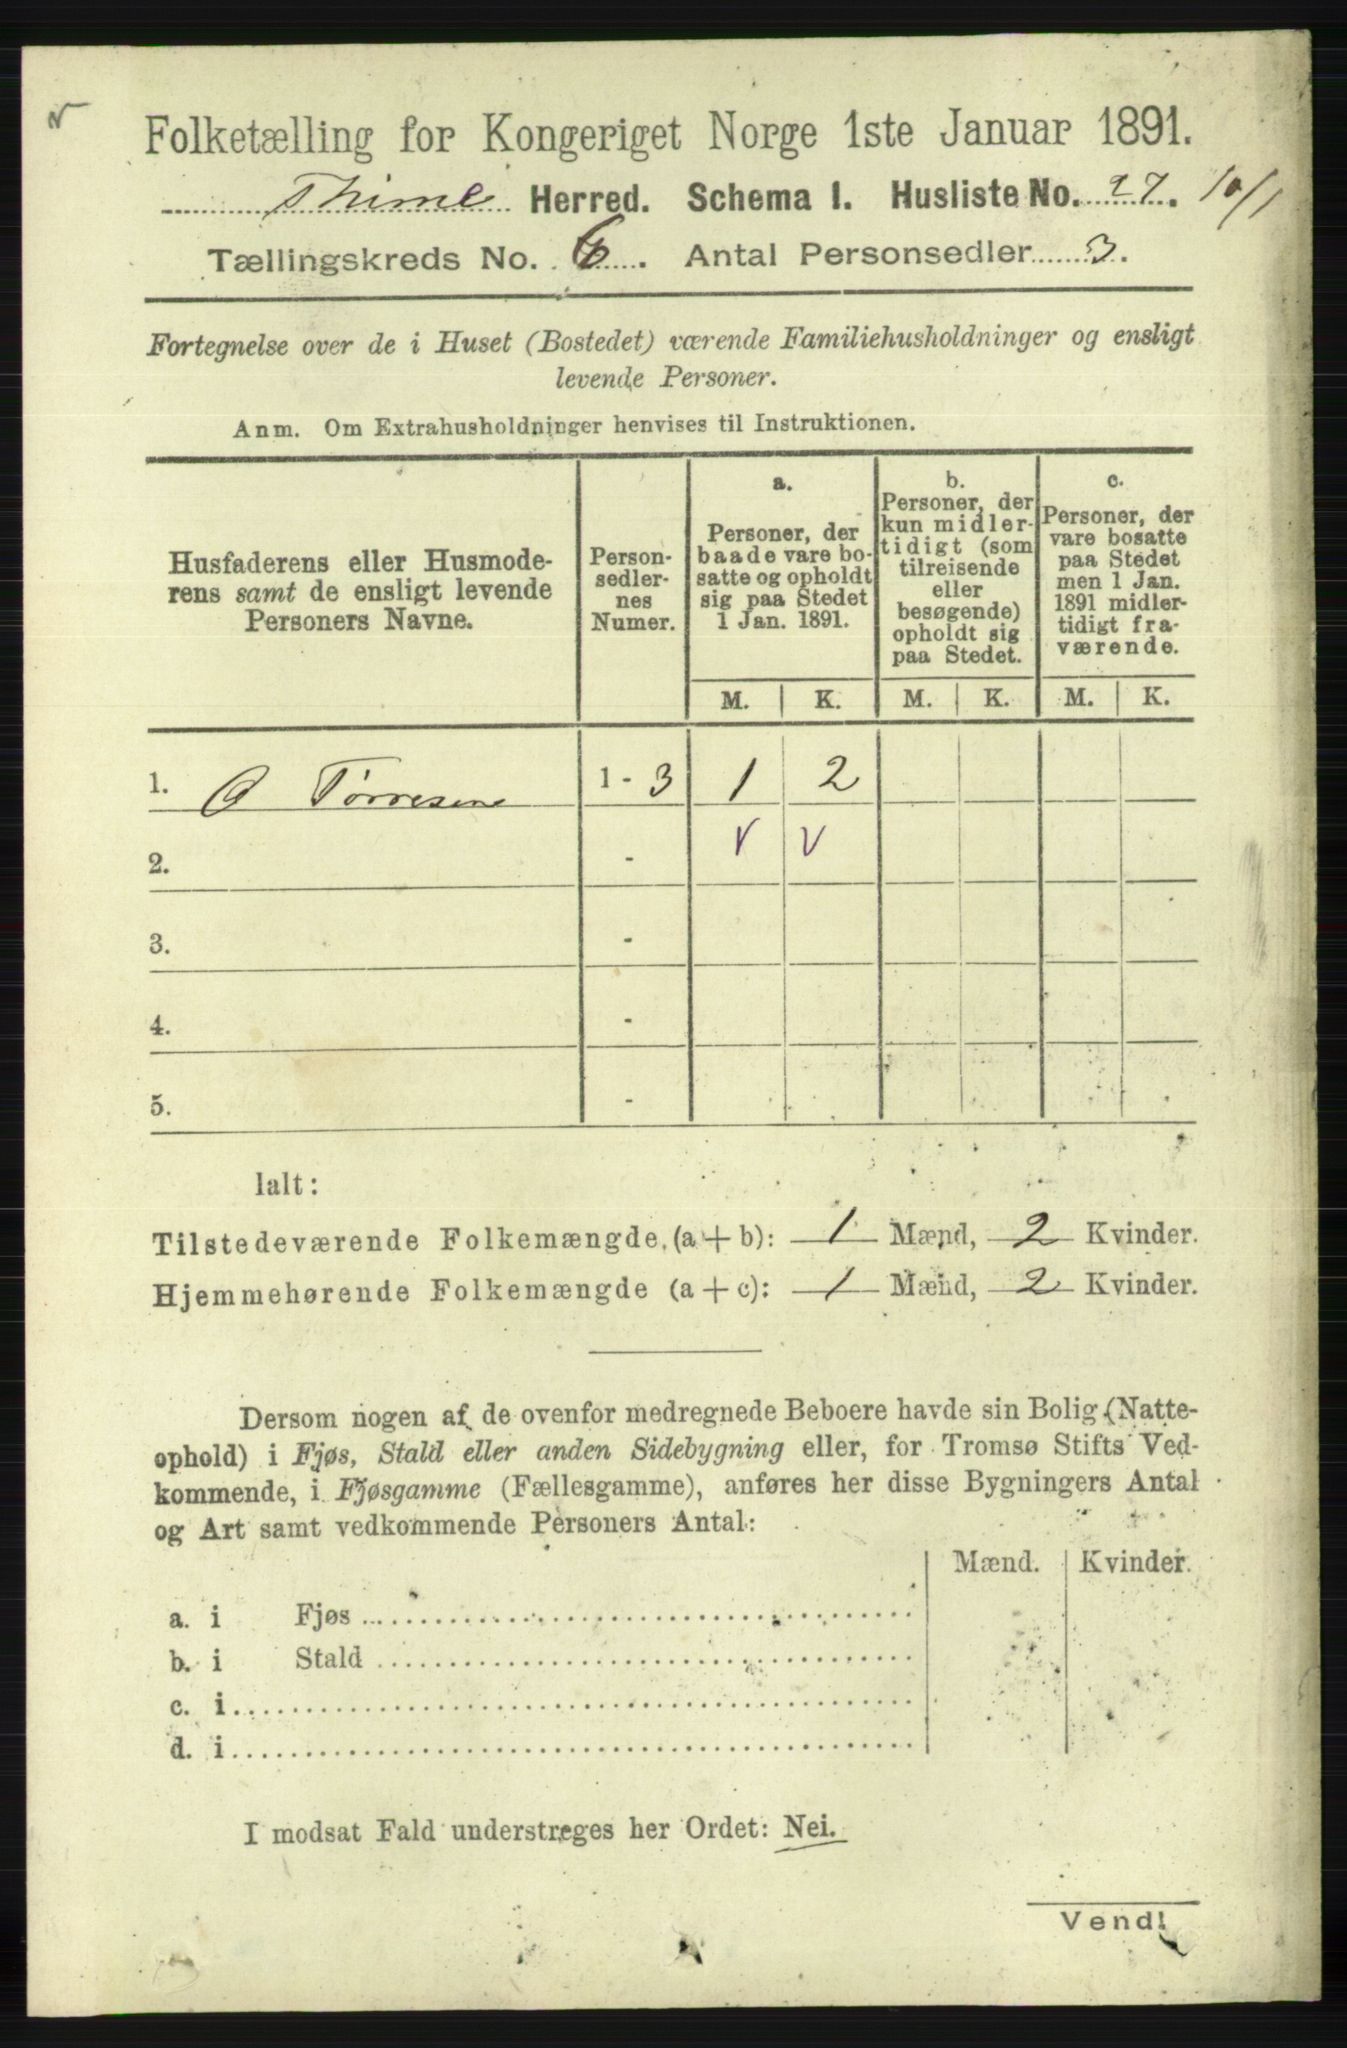 Folketælling for Kongeriget Norge 1ste Januar 1891.
Thime Herred. Schema I. Husliste No. 27. 10/1
Tællingskreds No. 6. Antal Personsedler 3.
Fortegnelse over de i Huset (Bostedet) værende Familiehusholdninger og ensligt
levende Personer.
Anm. Om Extrahusholdninger henvises til Instruktionen.
Husfaderens eller Husmode-
rens samt de ensligt levende
Personers Navne.
Person-
sedler-
nes
Numer.
a.
Personer, der
baade vare bo-
satte og opholdt
sig paa Stedet
1 Jan. 1891.
b.
Personer, der
kun midler-
tidigt (som
tilreisende
eller
besøgende)
opholdt sig
paa Stedet.
c.
Personer, der
vare bosatte
paa Stedet
men 1 Jan.
1891 midler-
tidigt fra-
værende.
M. K. M. K. M. K.
1. O Tørresen 1 - 3 1 2
2. -
3. -
4. -
5. -
Ialt:
Tilstedeværende Folkemængde (a + b): 1 Mænd, 2 Kvinder.
Hjemmehørende Folkemængde (a + c): 1 Mænd, 2 Kvinder.
Dersom nogen af de ovenfor medregnede Beboere havde sin Bolig (Natte-
ophold) i Fjøs, Stald eller anden Sidebygning eller, for Tromsø Stifts Ved-
kommende, i Fjøsgamme (Fællesgamme), anføres her disse Bygningers Antal
og Art samt vedkommende Personers Antal:
Mænd. Kvinder.
a. i Fjøs
b. i Stald
c. i
d. i
I modsat Fald understreges her Ordet: Nei.
Vend!